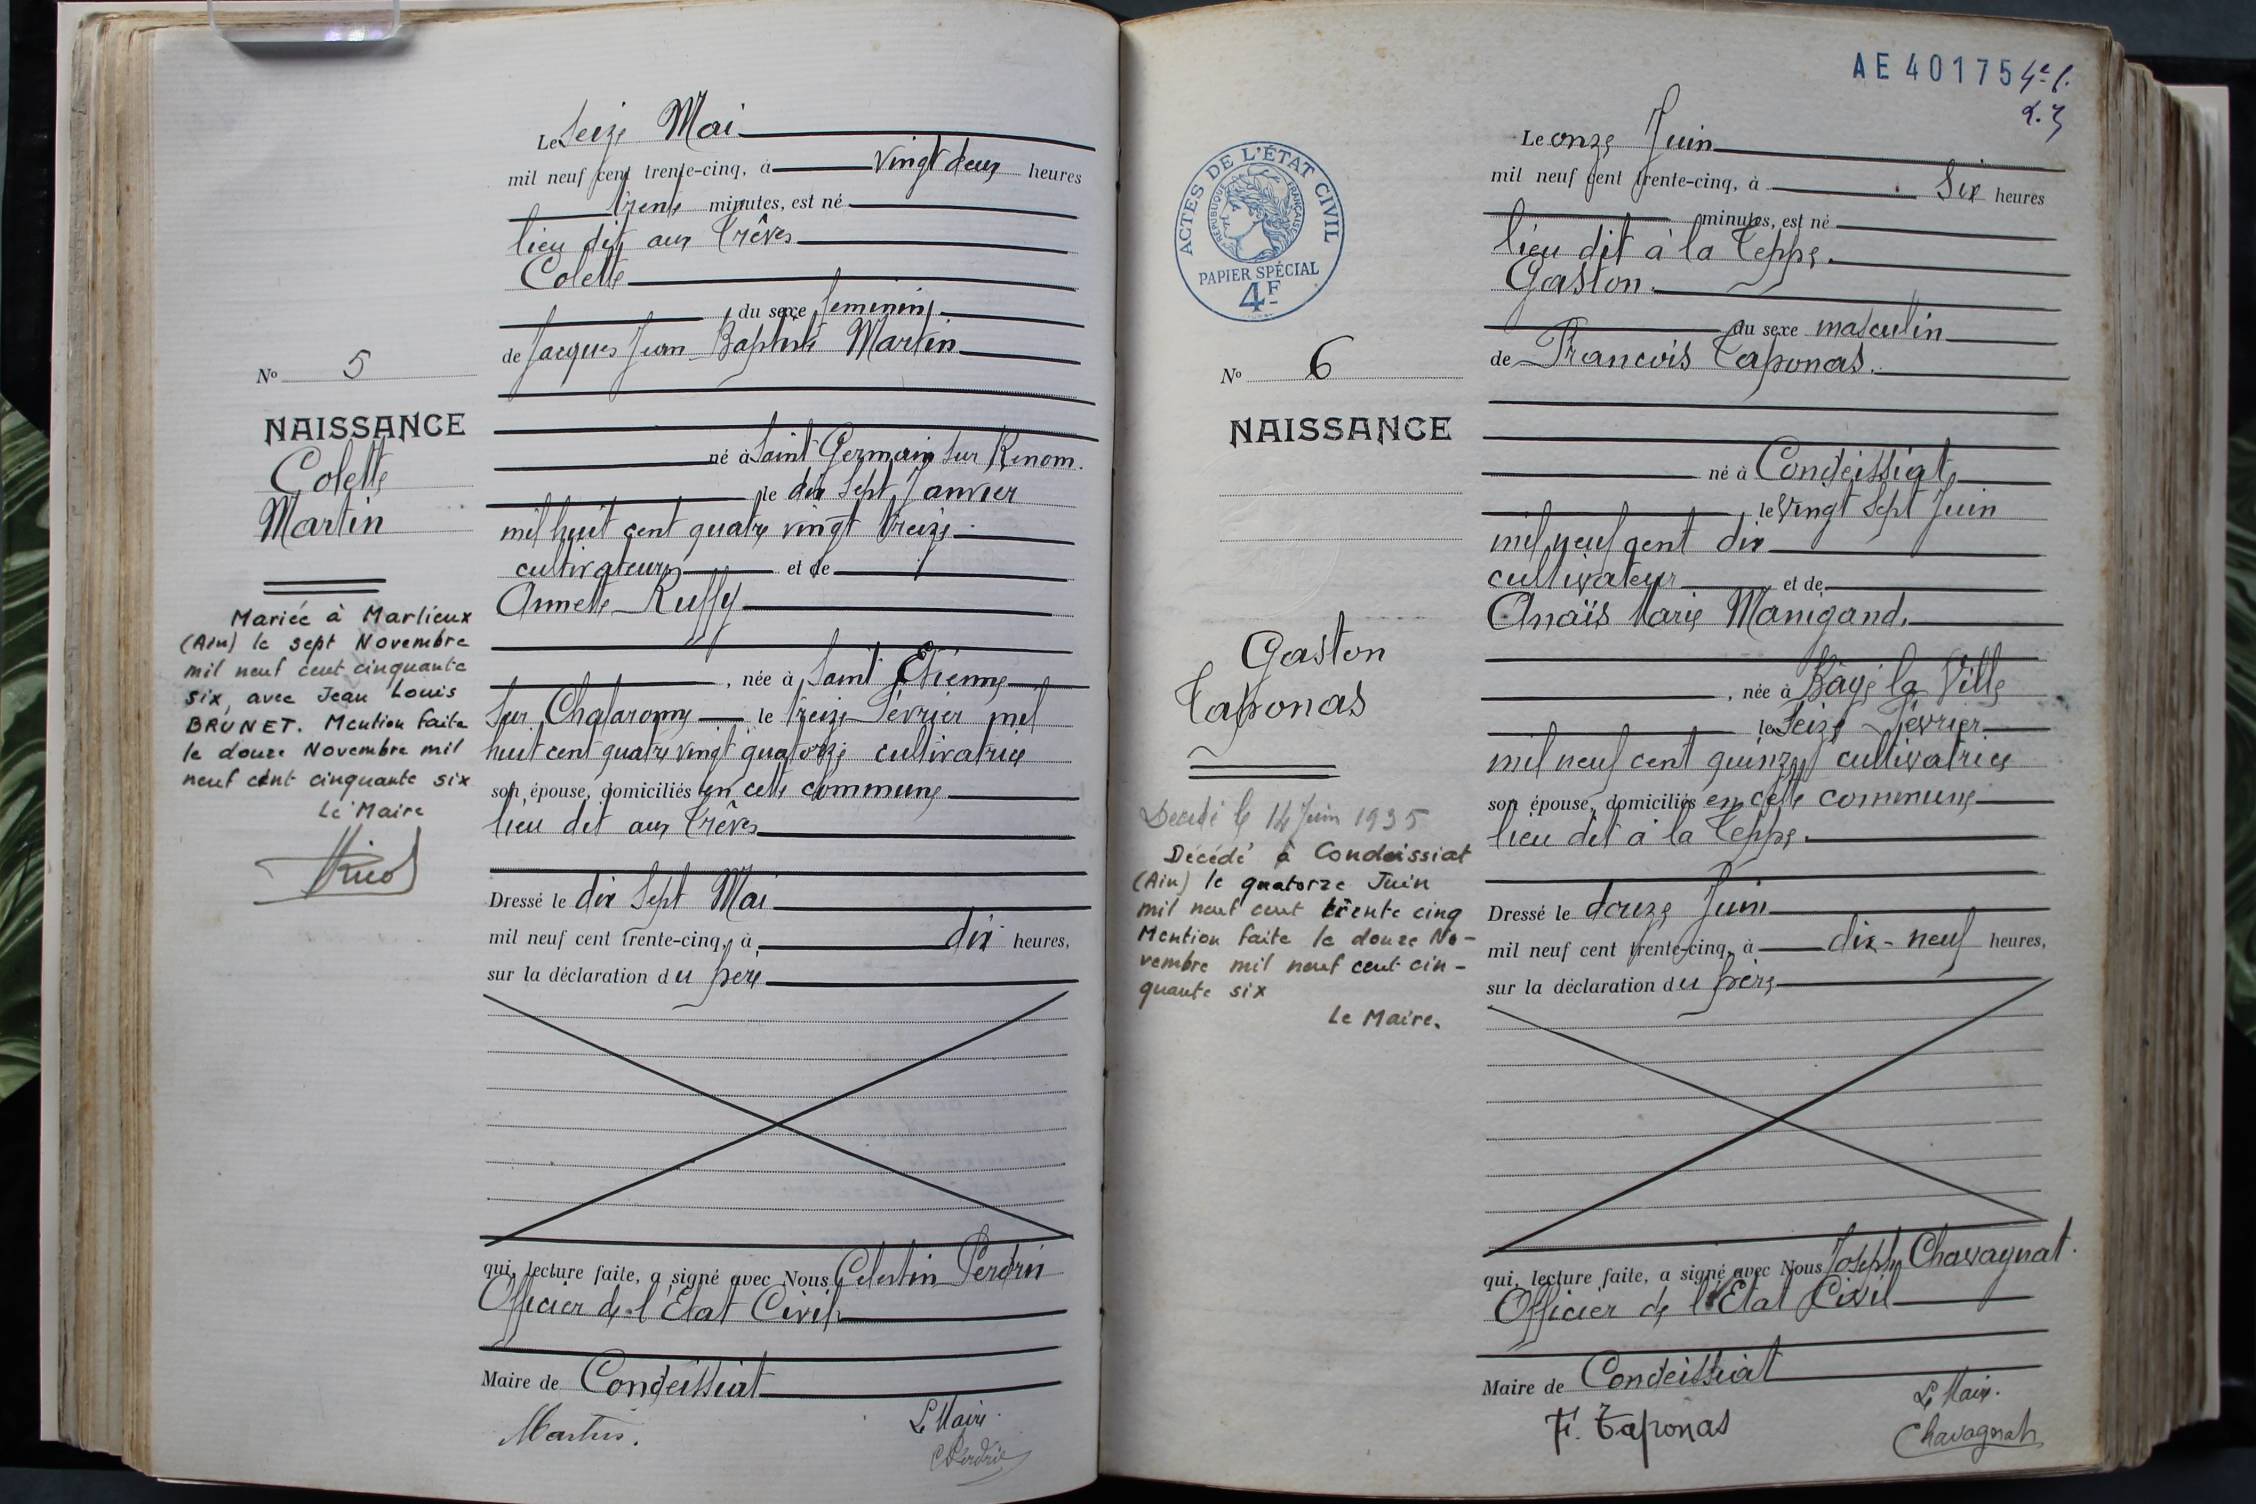 Le Seize Mai
mil neuf cent trente-cinq, à vingt deux heures
trente minutes, est né
lieu dit aux Trêves
Colette
du sexe féminin
de Jacques Jean Baptiste Martin
né à Saint Germain sur Renom.
le dix Sept Janvier
mil huit cent quatre vingt treize
cultivateur et de
Annette Ruffy
, née à Saint Etienne
sur Chalaronne le treize Février mil
huit cent quatre vingt quatorze cultivatrice
son épouse, domiciliés en cette commune
lieu dit aux Trêves
Dressé le dix Sept Mai
mil neuf cent trente-cinq, à dix heures,
sur la déclaration du père
qui, lecture faite, a signé avec Nous Celestin Perdrix
Officier de l'Etat Civil
Maire de Condeissiat
Martin.
Le Maire.
C Perdrix
No 5
NAISSANCE
Colette
Martin
Mariée à Marlieux
(Ain) le sept Novembre
mil neuf cent cinquante
six, avec Jean Louis
BRUNET. Mention faite
le douze Novembre mil
neuf cent cinquante six
Le Maire
AE 40175
ACTES DE L'ÉTAT CIVIL
RÉPUBLIQUE FRANÇAISE
PAPIER SPÉCIAL
4F
Le onze Juin
mil neuf cent trente-cinq, à six heures
minutes, est né
lieu dit à la Teppe.
Gaston.
du sexe masculin
de François Taponas.
né à Condeissiat
le Vingt Sept Juin
mil neuf cent dix
cultivateur et de
Anaïs Marie Manigand.
, née à Bâgé la Ville
le Seize Février
mil neuf cent quinze cultivatrice
son épouse, domiciliés en cette commune
lieu dit à la Teppe.
Dressé le douze Juin
mil neuf cent trente-cinq, à dix-neuf heures,
sur la déclaration du père
qui, lecture faite, a signé avec Nous Joseph Chavagnat.
Officier de l'Etat Civil
Maire de Condeissiat
F. Taponas
Le Maire.
Chavagnat
No 6
NAISSANCE
Gaston
Taponas
Décédé le 14 Juin 1935
Décédé à Condeissiat
(Ain) le quatorze Juin
mil neuf cent trente cinq
Mention faite le douze No-
vembre mil neuf cent cin-
quante six
Le Maire.